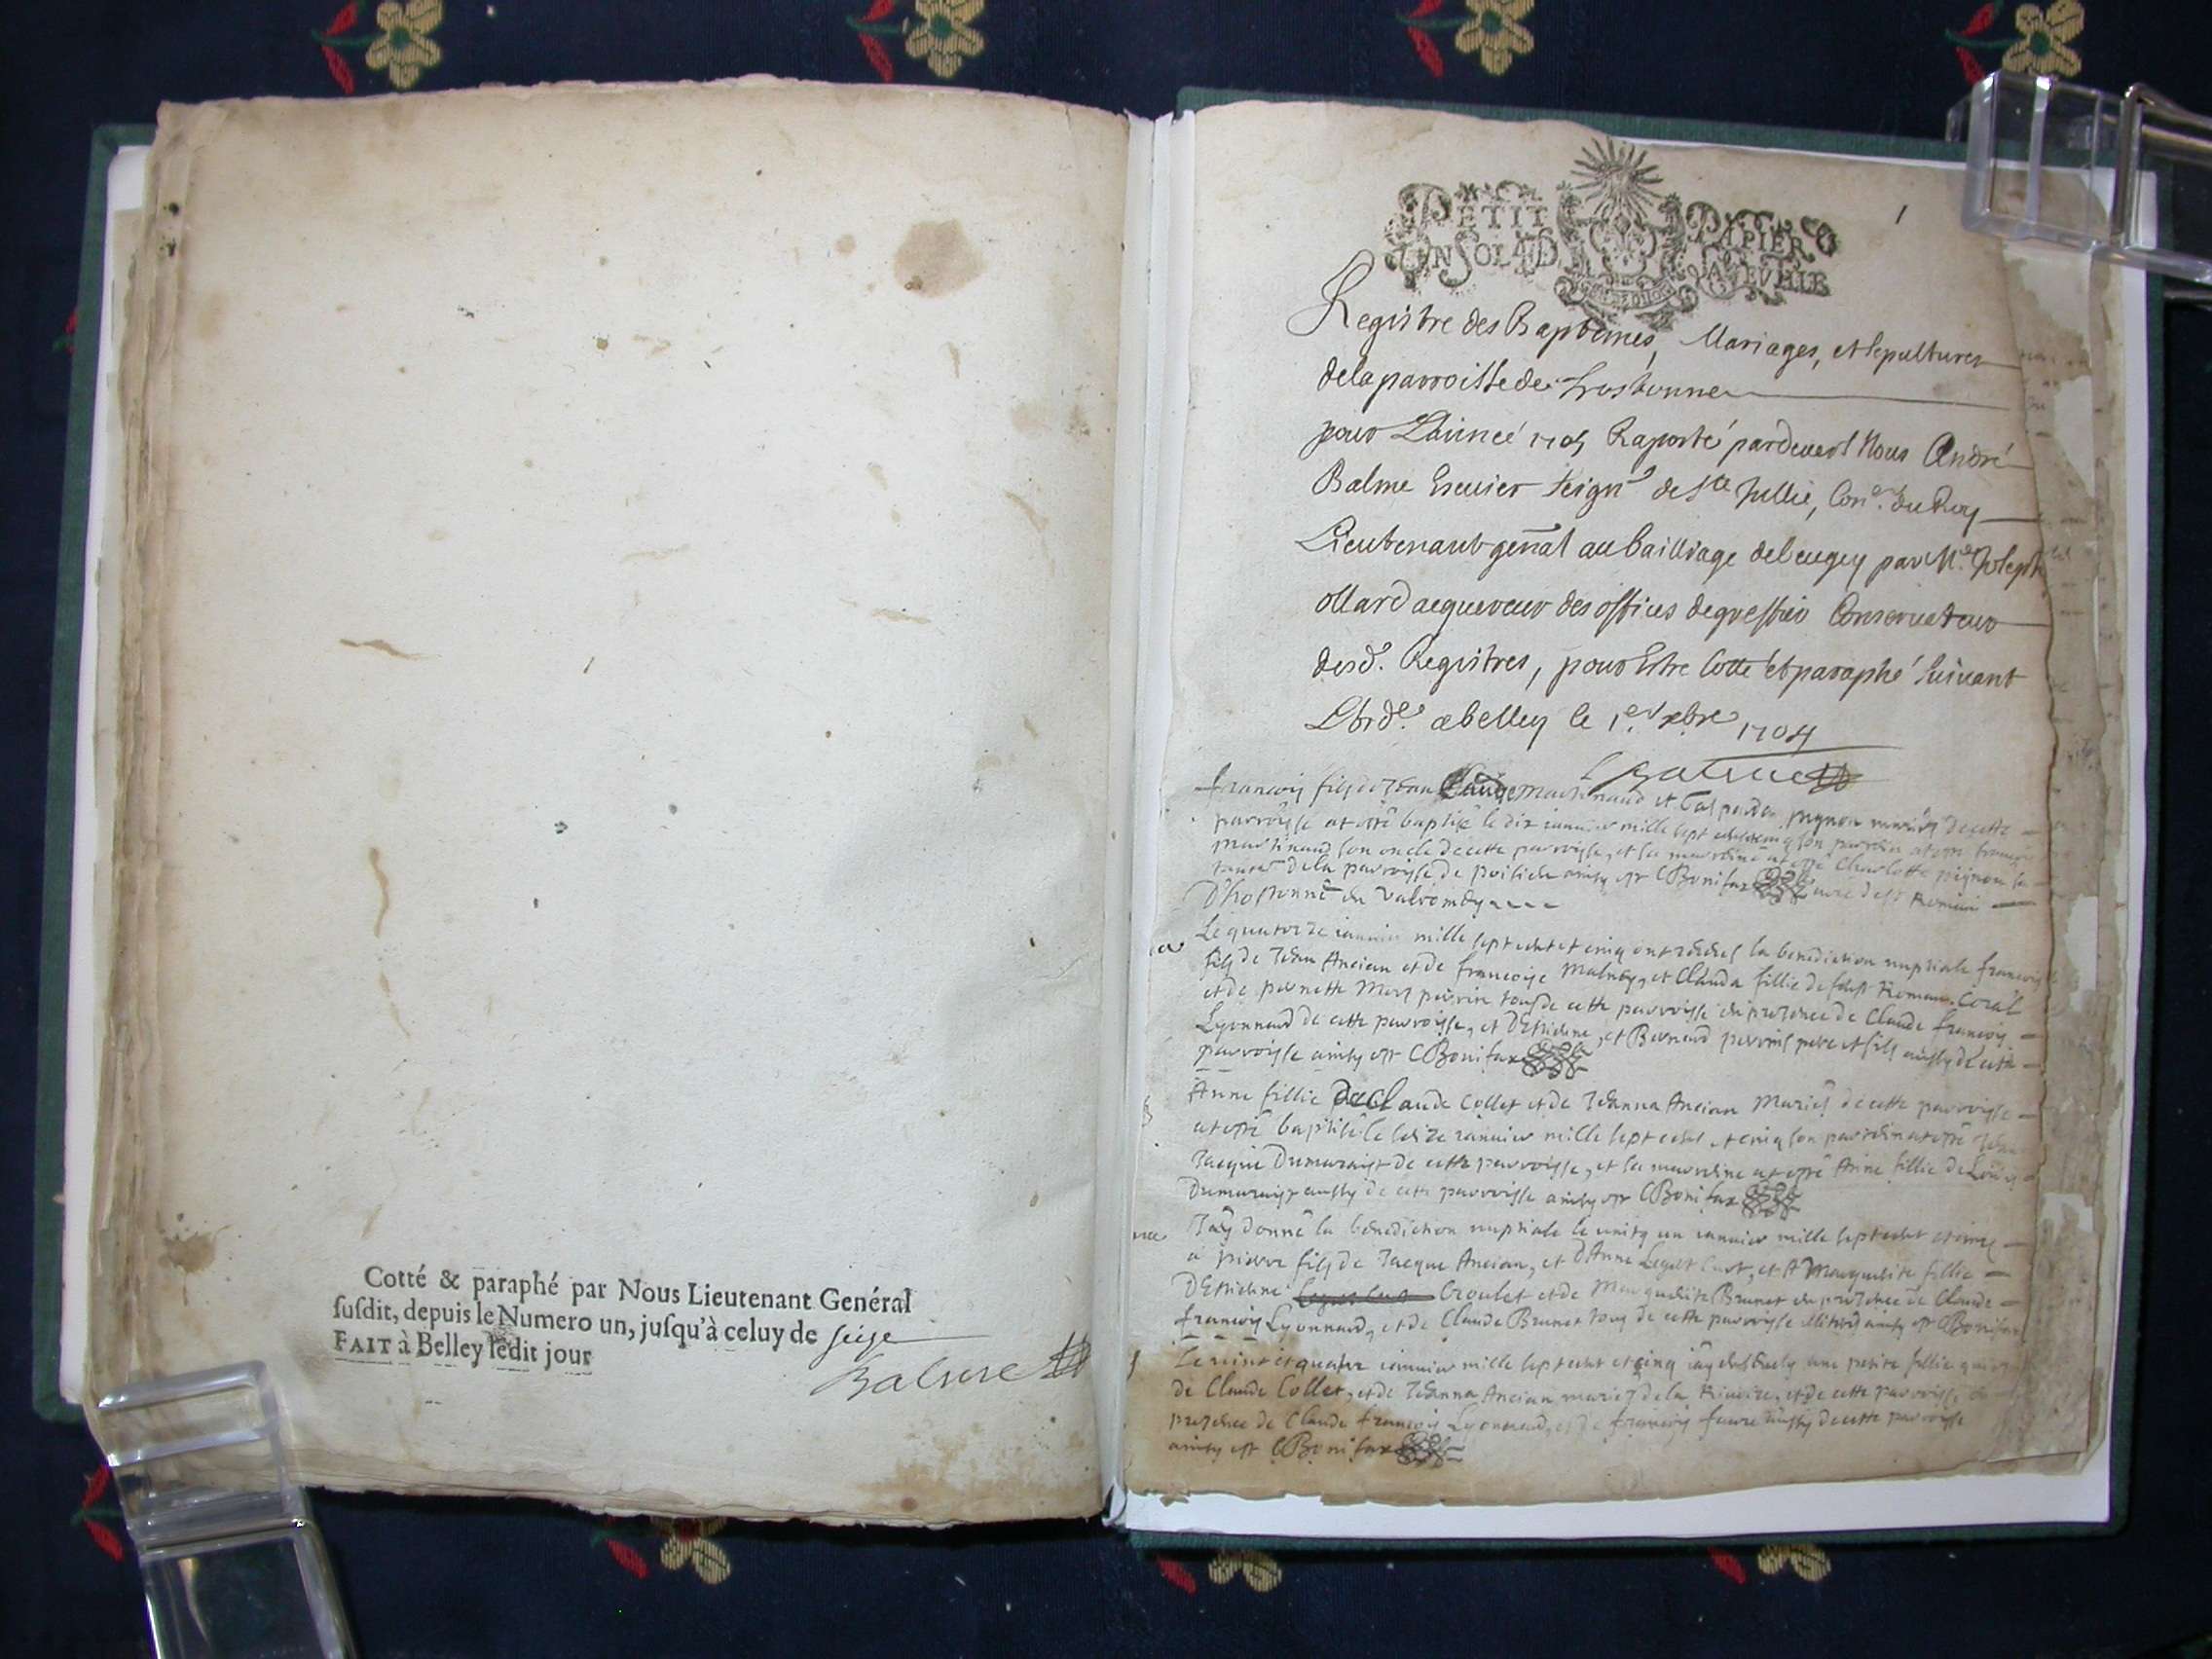 Cotté & paraphé par Nous Lieutenant Genéral
ſuſdit, depuis le Numero un, juſqu'à celuy de seize
FAIT à Belley ledit jour
Balme
1
PETIT PAPIER
UN SOL 4 D LA FEVILLE
Registre des Baptemes, Mariages, et sepultures
dela parroisse de hostonne
pour L'année 1705 Raporté pardevers Nous André
Balme Escuier seignr de ste Jullie, Coner. du Roy
Lieutenant genal au bailliage debeugey par Me. Joseph
ollard acquereur des offices de greffier Conservateur
desd. Registres, pour Estre Cotté et paraphé suivant
L'ordce. a belley le 1er xbre 1704
Balme
francois fils de Jean Claude martinaud et Caspanda pignon mariés de cette
parroisse at esté baptisé le dix ianvier mille sept cent cinq son pardin at esté francois
martinaud son oncle de cette parroisse, et sa mardine at esté Charlotte pignon sa
de la parroisse de poisieu ainsy est CBonifax curé de st Romain
D'hostonne en valromey
Le quatorze ianvier mille sept cent et cinq ont la benediction nuptiale francois
fils de Jean Ancian et de francoise et Clauda fillie de Romain Coral
et de pernette perrin tous de cette parroisse en presence de Claude francois
Lyonnard de cette parroisse, et D'Estienne, et Bernard perrins pere et fils aussy de cette
parroisse ainsy est CBonifax
Anne fillie de Claude Collet et de Jeanna Ancian Mariés de cette parroisse
at esté baptisée le seize ianvier mille sept cent et cinq son pardin at esté Jean
Jacque Dumaraist de cette parroisse, et sa mardine at esté Anne fillie de Louis
Dumaraist aussy de cette parroisse ainsy est CBonifax
J'ay donné la benediction nuptiale le vinty un ianvier mille sept cent et cinq
à pierre fils de Jacque Ancian, et D'Anne et A Marguerite fillie
D'Estienne Croulet et de Marguerite Brunet en presence de Claude
francois Lyonnard, et de Claude Brunet tous de cette parroisse ainsy est CBonifax
Le vint et quatre ianvier mille sept cent et cinq i'ay une petite fillie
de Claude Collet, et de Jeanna Ancian mariés de la Riviere, et de cette parroisse
presence de Claude francois Lyonnard, et de francois favre aussy de cette parroisse
ainsy est CBonifax